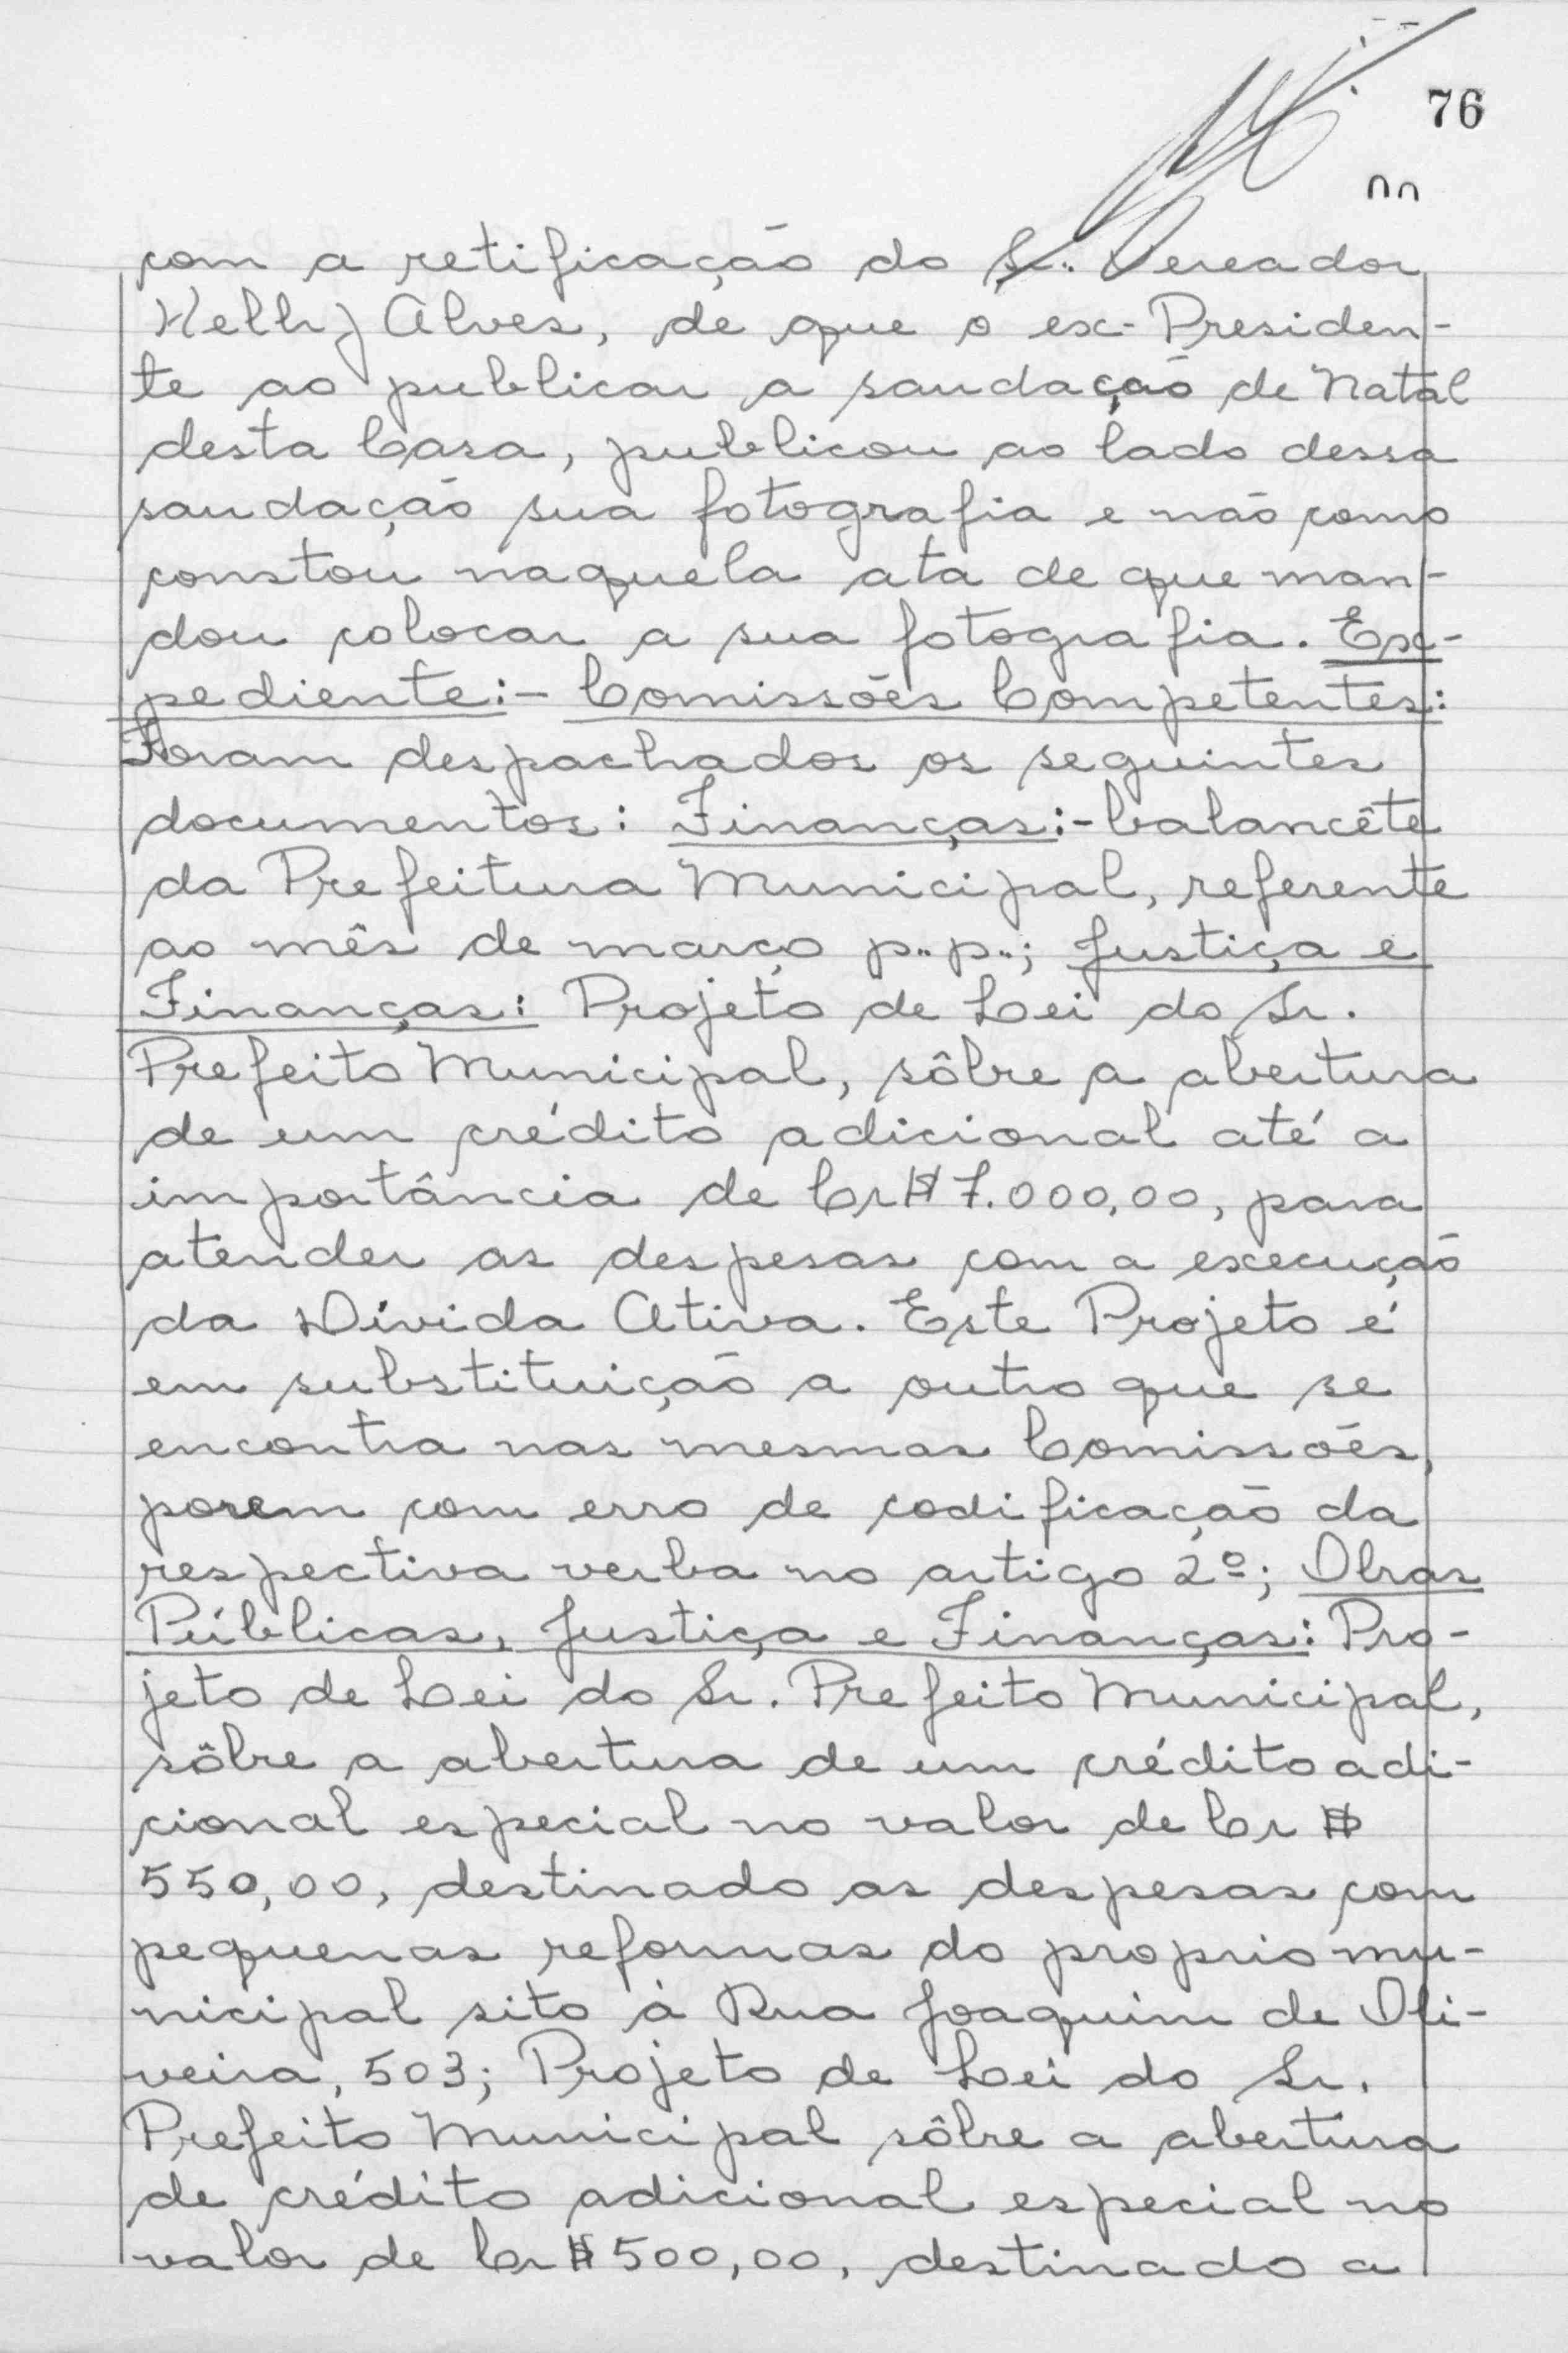 76
com a retificação do Sr. Vereador
Kelly Alves, de que o ex-Presiden-
te ao publicar a saudação de Natal
desta Casa, publicou ao lado dessa
saudação sua fotografia e não como
constou naquela ata de que man-
dou colocar a sua fotografia. Ex-
pediente:- Comissões Competentes:
Foram despachados os seguintes
documentos: Finanças:- balancête
da Prefeitura Municipal, referente
ao mês de março p.p.; Justiça e
Finanças: Projeto de Lei do Sr.
Prefeito Municipal, sôbre a abertura
de um crédito adicional até a
importância de Cr$ 7.000,00, para
atender as despesas com a execução
da Dívida Ativa. Este Projeto é
em substituição a outro que se
encontra nas mesmas Comissões,
porem com erro de codificação da
respectiva verba no artigo 2º; Obras
Públicas, Justiça e Finanças: Pro-
jeto de Lei do Sr. Prefeito Municipal,
sôbre a abertura de um crédito adi-
cional especial no valor de Cr$
550,00, destinado as despesas com
pequenas reformas do proprio mu-
nicipal sito à Rua Joaquim de Oli-
veira, 503; Projeto de Lei do Sr.
Prefeito Municipal sôbre a abertura
de crédito adicional especial no
valor de Cr$ 500,00, destinado a